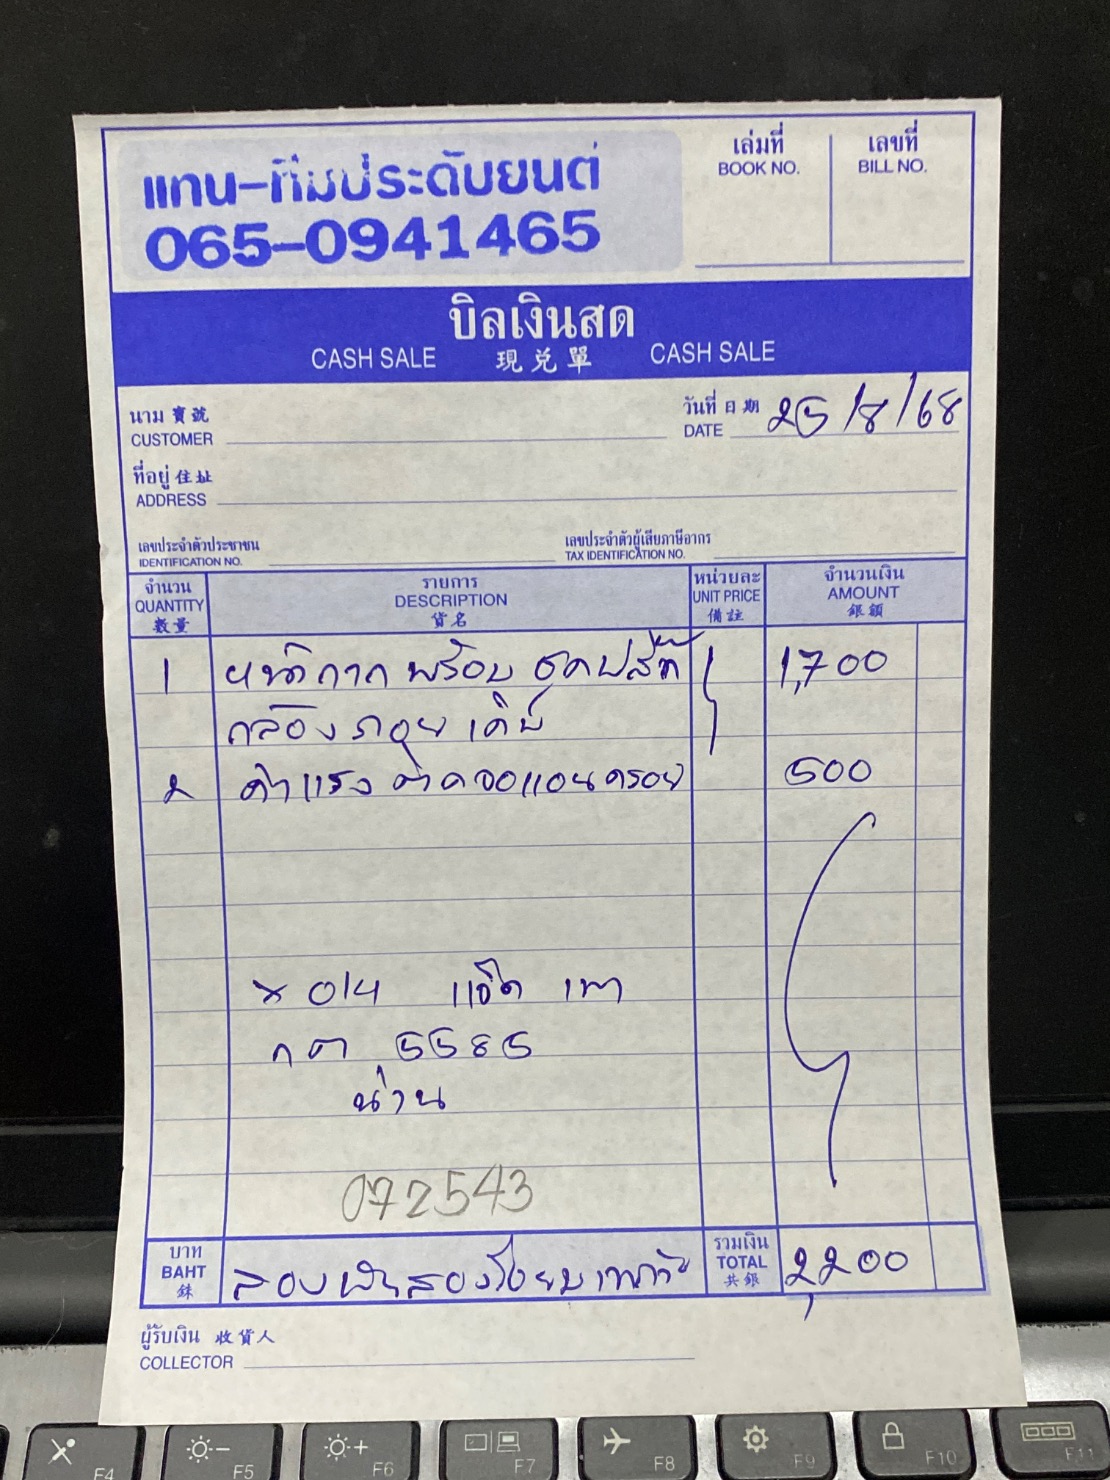 แทน-ทีมประดับยนต์
065-0941465
เล่มที่
BOOK NO.
เลขที่
BILL NO.
บิลเงินสด
CASH SALE 現兌單 CASH SALE
นาม 寶號
CUSTOMER
วันที่ 日期
DATE 25/8/68
ที่อยู่ 住址
ADDRESS
เลขประจำตัวประชาชน
IDENTIFICATION NO.
เลขประจำตัวผู้เสียภาษีอากร
TAX IDENTIFICATION NO.
จำนวน
QUANTITY
數量
รายการ
DESCRIPTION
貨名
หน่วยละ
UNIT PRICE
備註
จำนวนเงิน
AMOUNT
銀額
1 หน้ากาก พร้อม ชุดปลั๊ก 1,700
กล้อง ถอย เดิม
2 ค่าแรง จอแอนดรอย 500
แอ๊ด เทา
กต 5585
น่าน
072543
บาท
BAHT
銖
สองพันสองร้อยบาท
รวมเงิน
TOTAL
共銀
2,200
ผู้รับเงิน 收貨人
COLLECTOR
F4 F5 F6 F7 F8 F9 F10 F11